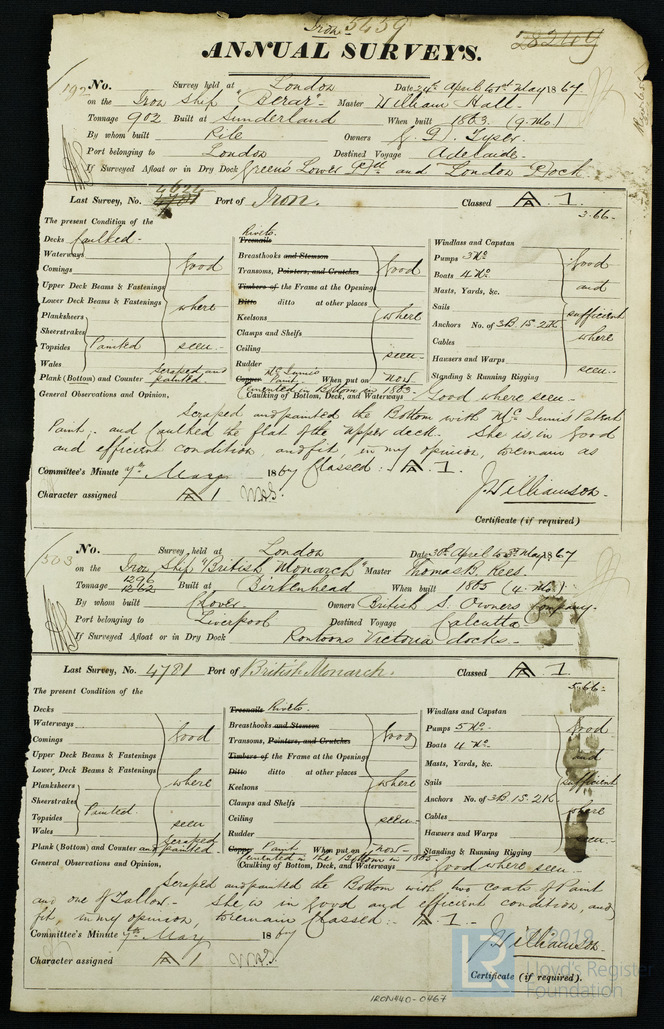 Iron 5459
28249
ANNUAL SURVEYS.
No. Survey held at London Date 24th April to 1st May 1867
on the Iron Ship "Berar" Master William Hall
Tonnage 902 Built at Sunderland When built 1863 (9. Mo.)
By whom built Pile Owners G. D. Tyser
Port belonging to London Destined Voyage Adelaide
If Surveyed Afloat or in Dry Dock Green's Lower and London Dock
4624
Last Survey, No. Port of Iron. Classed A 1.
3.66
The present Condition of the
Decks Caulked
Waterways
Comings good
Upper Deck Beams & Fastenings
Lower Deck Beams & Fastenings where
Planksheers
Sheerstrakes
Topsides Painted seen
Wales
Plank (Bottom) and Counter scraped and painted
Rivets
Treenails
Breasthooks and Stemson
Transoms, Pointers, and Crutches good
Timbers of the Frame at the Openings
Ditto ditto at other places
Keelsons where
Clamps and Shelfs
Ceiling seen
Rudder
Copper Paint When put on now
Cemented in Bottom in 1863
Windlass and Capstan
Pumps 3 No good
Boats 4 No
Masts, Yards, &c. and
Sails sufficient
Anchors No. of 3B. 1S. 2K
Cables where
Hawsers and Warps
Standing & Running Rigging seen
General Observations and Opinion, Caulking of Bottom, Deck, and Waterways Good where seen
Scraped and painted the Bottom with Mc Innis's Patent
Paint, and Caulked the flat of the upper deck. She is in good
and efficient condition, and fit, in my opinion, to remain as
Committee's Minute 7th May 1867 Classed A 1.
Character assigned A 1
J. Williamson
Certificate (if required)
No. Survey held at London Date 30th April to 3rd May 1867
on the Iron Ship "British Monarch" Master Thomas B. Rees
Tonnage 1296 1262 Built at Birkenhead When built 1865 (4. Mo.)
By whom built Clover Owners British S. Owners Company
Port belonging to Liverpool Destined Voyage Calcutta
If Surveyed Afloat or in Dry Dock Pontoons Victoria docks
Last Survey, No. 4781 Port of British Monarch. Classed A 1.
5.66
The present Condition of the
Decks
Waterways
Comings good
Upper Deck Beams & Fastenings
Lower Deck Beams & Fastenings
Planksheers where
Sheerstrakes
Topsides Painted
Wales seen
Plank (Bottom) and Counter scraped and painted
Treenails Rivets
Breasthooks and Stemson
Transoms, Pointers, and Crutches good
Timbers of the Frame at the Openings
Ditto ditto at other places
Keelsons where
Clamps and Shelfs
Ceiling seen
Rudder
Copper Paint When put on now
Cemented in the Bottom in 1865
Windlass and Capstan
Pumps 5 No good
Boats 4 No
Masts, Yards, &c. and
Sails sufficient
Anchors No. of 3B. 1S. 2K
Cables where
Hawsers and Warps
Standing & Running Rigging seen
General Observations and Opinion, Caulking of Bottom, Deck, and Waterways good where seen
Scraped and painted the Bottom with two coats of Paint
and one of Tallow. She is in good and efficient condition, and
fit, in my opinion, to remain Classed: A 1.
Committee's Minute 7th May 1867
Character assigned A 1
J. Williamson
Certificate (if required).
IRON440-0467
2019
LR Lloyd's Register
Foundation